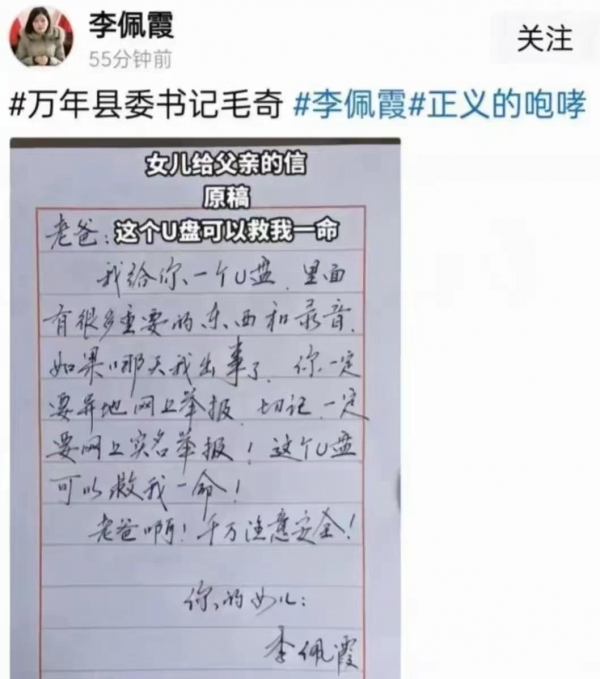 李佩霞
55分钟前
关注
#万年县委书记毛奇 #李佩霞#正义的咆哮
女儿给父亲的信
原稿
老爸：这个U盘可以救我一命
我给你一个U盘，里面
有很多重要的东西和录音，
如果哪天我出事了，你一定
要异地网上举报，切记，一定
要网上实名举报！这个U盘
可以救我一命！
老爸啊！千万注意安全！
你的女儿：
李佩霞